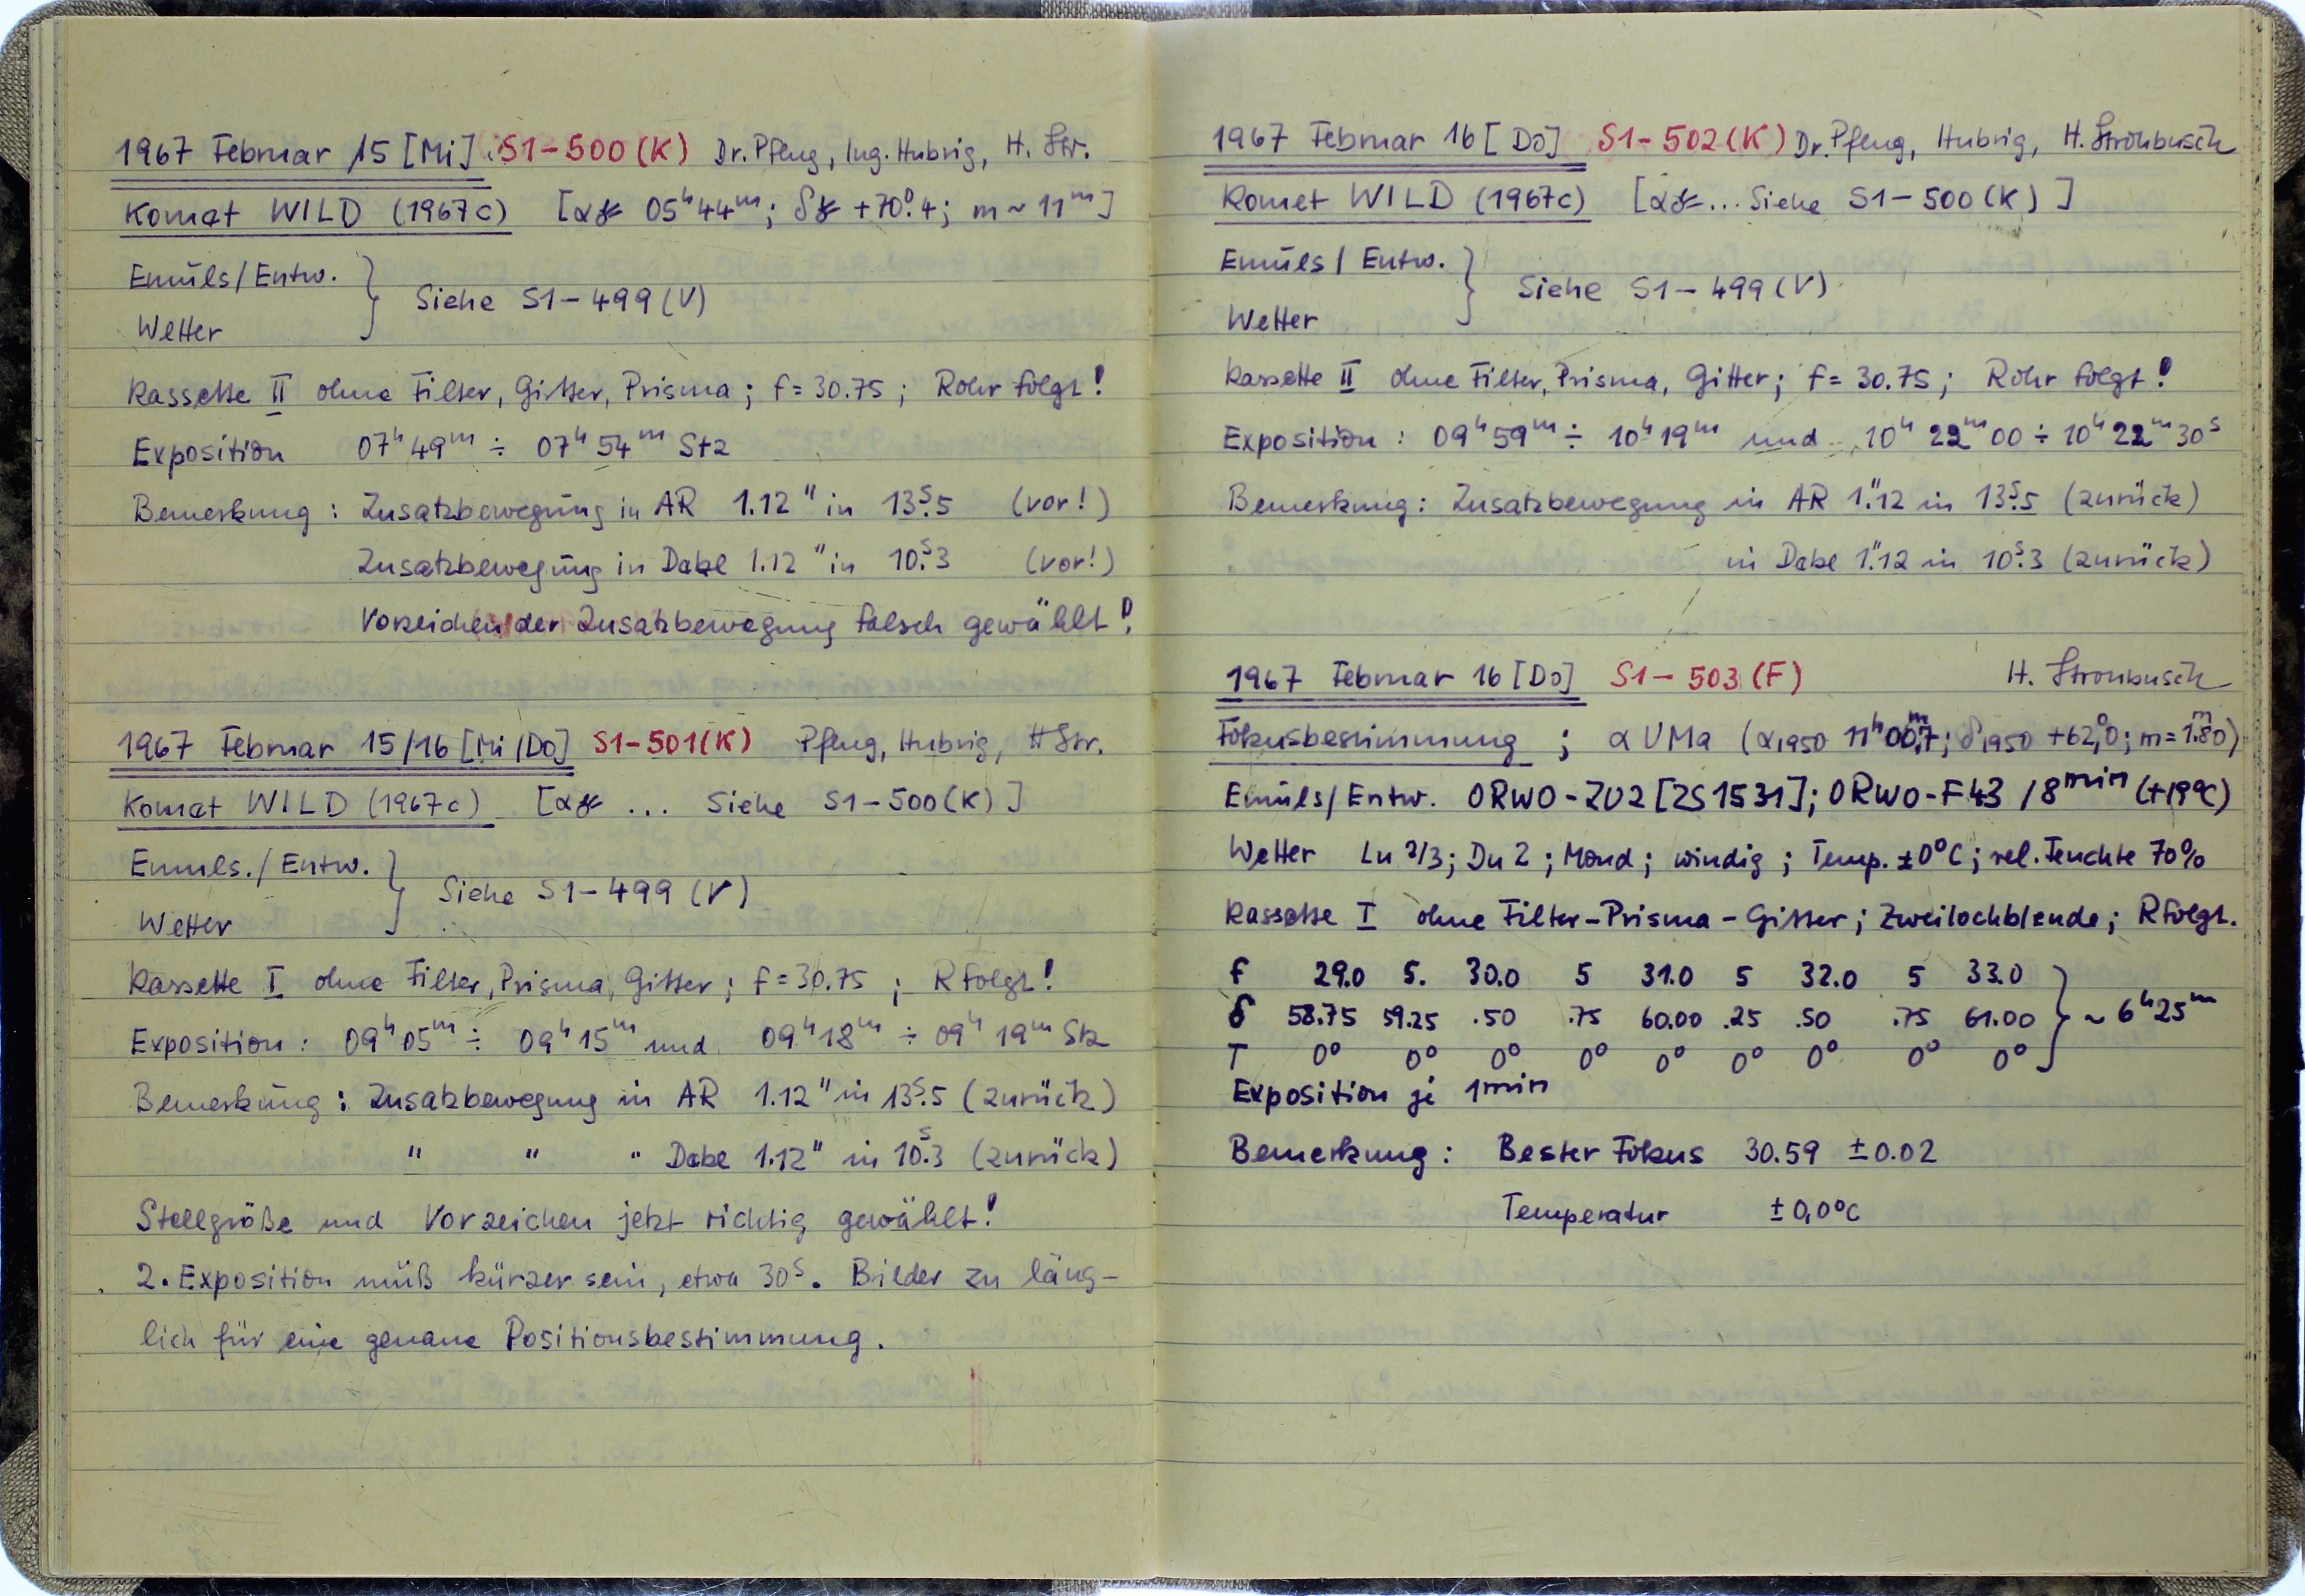 1967 Februar 15 [Mi] S1-500 (K) Dr. Pfleug, Ing. Hubrig, H. Str.
Komet WILD (1967c) [α☄ 05ʰ44ᵐ; δ☄ +70°.4; m ~ 11ᵐ]
Emuls/Entw.
Wetter
} Siehe S1-499 (V)
Kassette II ohne Filter, Gitter, Prisma; f = 30.75; Rohr folgt!
Exposition 07ʰ49ᵐ ÷ 07ʰ54ᵐ Stz
Bemerkung: Zusatzbewegung in AR 1.12" in 13ˢ.5 (vor!)
Zusatzbewegung in Dabe 1.12" in 10ˢ.3 (vor!)
Vorzeichen der Zusatzbewegung falsch gewählt!
1967 Februar 15/16 [Mi/Do] S1-501 (K) Pfleug, Hubrig, H Str.
Komet WILD (1967c) [α☄ ... Siehe S1-500 (K)]
Emuls./Entw.
Wetter
} Siehe S1-499 (V)
Kassette I ohne Filter, Prisma, Gitter; f = 30.75; R folgt!
Exposition: 09ʰ05ᵐ ÷ 09ʰ15ᵐ und 09ʰ18ᵐ ÷ 09ʰ19ᵐ Stz
Bemerkung: Zusatzbewegung in AR 1.12" in 13ˢ.5 (zurück)
" " " Dabe 1.12" in 10ˢ.3 (zurück)
Stellgröße und Vorzeichen jetzt richtig gewählt!
2. Exposition muß kürzer sein, etwa 30ˢ. Bilder zu läng-
lich für eine genaue Positionsbestimmung.
1967 Februar 16 [Do] S1-502 (K) Dr. Pfleug, Hubrig, H. Strohbusch
Komet WILD (1967c) [α☄... Siehe S1-500 (K)]
Emuls/Entw.
Wetter
} Siehe S1-499 (V)
Kassette II ohne Filter, Prisma, Gitter; f = 30.75; Rohr folgt!
Exposition: 09ʰ59ᵐ ÷ 10ʰ19ᵐ und 10ʰ22ᵐ00 ÷ 10ʰ22ᵐ30ˢ
Bemerkung: Zusatzbewegung in AR 1".12 in 13ˢ.5 (zurück)
in Dabe 1".12 in 10ˢ.3 (zurück)
1967 Februar 16 [Do] S1-503 (F) H. Strohbusch
Fokusbestimmung; α UMa (α1950 11ʰ00ᵐ,7; δ1950 +62°,0; m = 1ᵐ.80)
Emuls/Entw. ORWO-ZU2 [ZS1531]; ORWO-F43 /8ᵐⁱⁿ (+19°C)
Wetter Lu 2/3; Du 2; Mond; windig; Temp. ±0°C; rel. Feuchte 70%
Kassette I ohne Filter-Prisma-Gitter; Zweilochblende; R folgt.
f 29.0 5. 30.0 5 31.0 5 32.0 5 33.0
δ 58.75 59.25 .50 .75 60.00 .25 .50 .75 61.00 } ~ 6ʰ25ᵐ
T 0° 0° 0° 0° 0° 0° 0° 0° 0°
Exposition je 1ᵐⁱⁿ
Bemerkung: Bester Fokus 30.59 ±0.02
Temperatur ±0,0°C